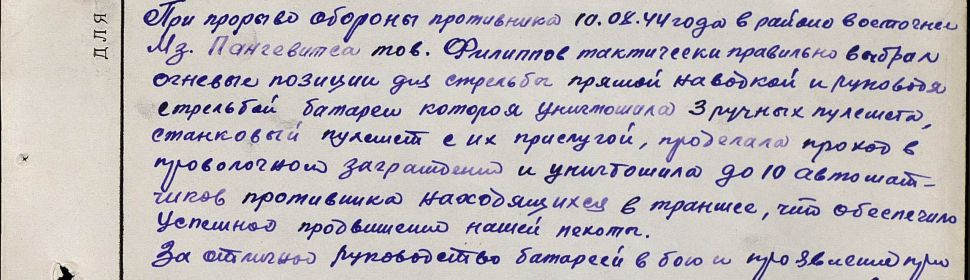 для
При прорыве обороны противника 10.08.44 года в районе восточнее
Мз. Пангевитса тов. Филиппов тактически правильно выбрал
огневые позиции для стрельбы прямой наводкой и руководя
стрельбой батареи которая уничтожила 3 ручных пулемета,
станковый пулемет с их прислугой, проделала проход в
проволочном заграждении и уничтожила до 10 автомат-
чиков противника находящихся в траншее, что обеспечило
успешное продвижение нашей пехоты.
За отличное руководство батареей в бою и проявление при